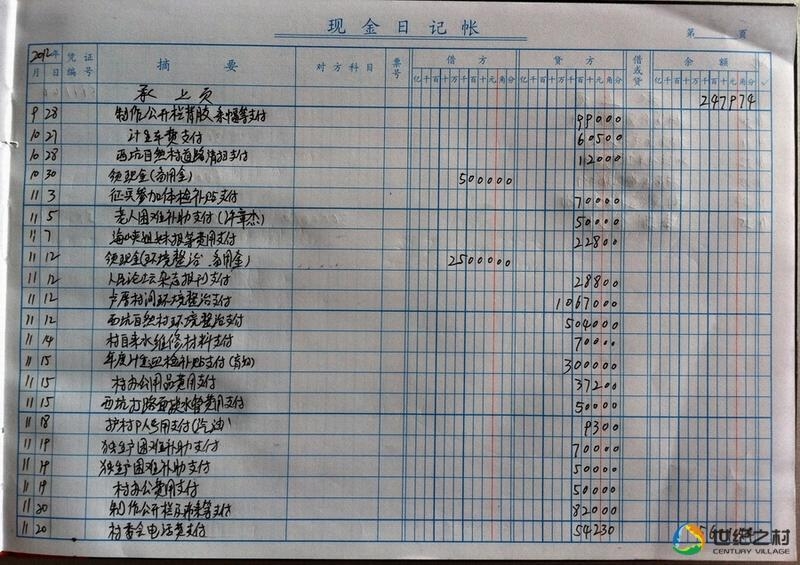 现金日记帐
第 页
2012年 凭证 摘要 对方科目 票号 借方 贷方 借或贷 余额
月 日 编号 亿千百十万千百十元角分 亿千百十万千百十元角分 亿千百十万千百十元角分
承上页 247974
9 28 制作公开栏背胶、条幅等支付 99000
10 27 计生车费支付 60500
10 28 西坑自然村道路清扫支付 12000
10 30 领现金(备用金) 500000
11 3 征兵参加体检补贴支付 70000
11 5 老人困难补助支付 50000
11 7 海峡姐妹报等费用支付 22800
11 12 领现金(环境整治、备用金) 2500000
11 12 人民论坛杂志报刊支付 28800
11 12 村间环境整治支付 1067000
11 12 西坑自然村环境整治支付 504000
11 14 村自来水维修材料支付 70000
11 15 年度计生 检补贴支付 300000
11 15 村办公用品费用支付 37200
11 15 西坑 路 水管费用支付 50000
11 18 护村 支付(汽油) 9300
11 19 独生户困难补助支付 70000
11 19 独生户困难补助支付 50000
11 19 村办公费用支付 50000
11 20 制作公开栏 等支付 82000
11 20 村委会电话费支付 54230
世纪之村
CENTURY VILLAGE